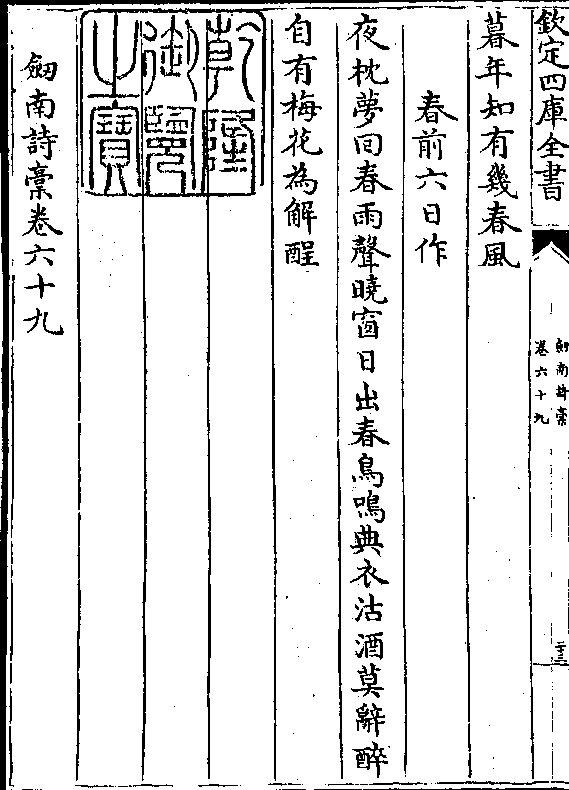 欽定四庫全書
劒南詩稾
卷六十九
二十三
暮年知有幾春風
春前六日作
夜枕夢回春雨聲曉窗日出春鳥鳴典衣沽酒莫辭醉
自有梅花為解酲
乾隆
御覽
之寶
劒南詩稾卷六十九